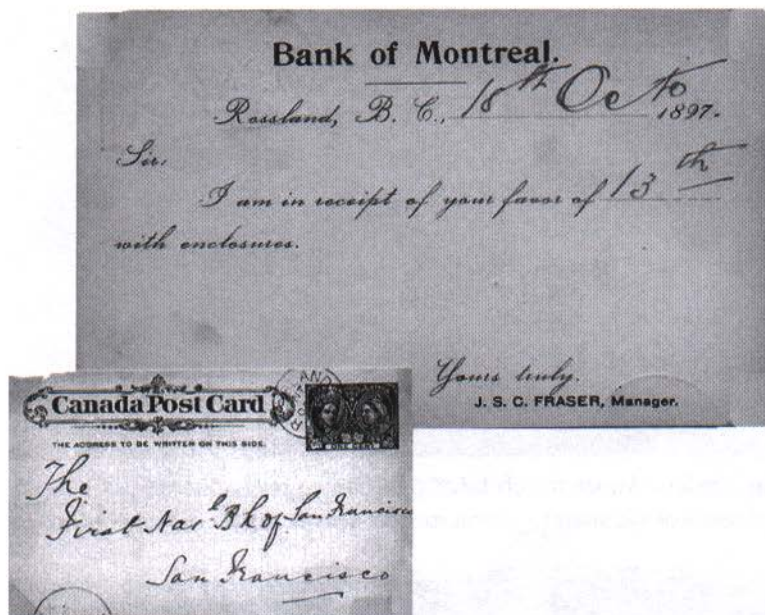 Bank of Montreal.
Rossland, B. C., 18th Octo 1897.
Sir,
I am in receipt of your favor of 13th
with enclosures.
Yours truly.
J. S. C. FRASER, Manager.
Canada Post Card
THE ADDRESS TO BE WRITTEN ON THIS SIDE.
AND
ONE CENT
The
First Nal Bk of San Francisco
San Francisco